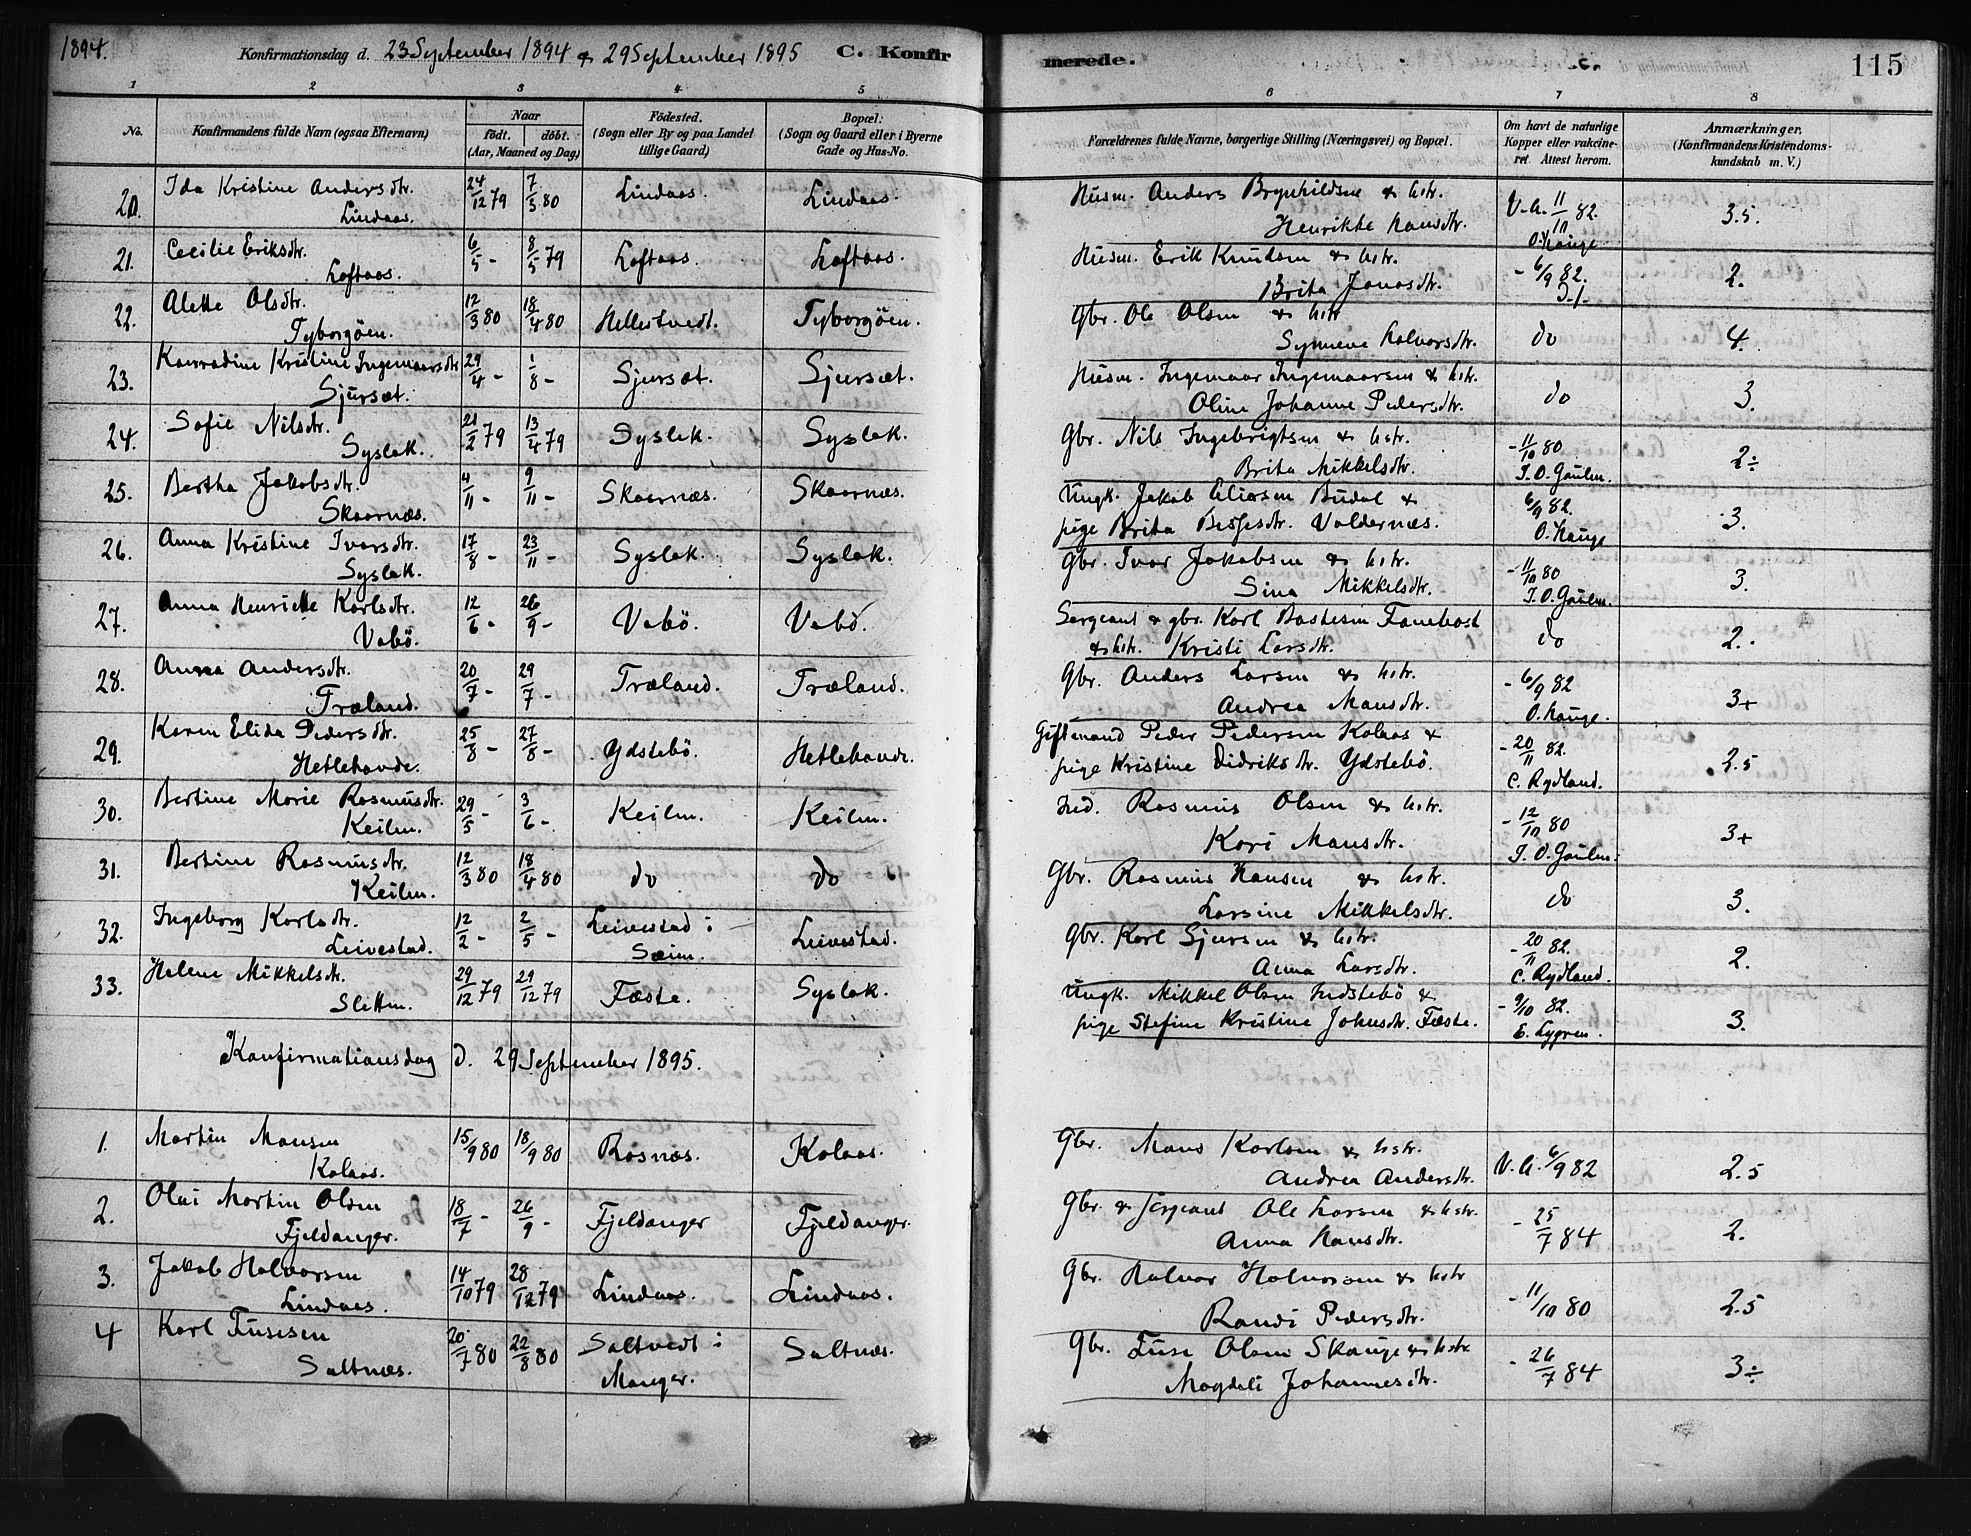 1894. Konfirmationsdag d. 23 September 1894 & 29 September 1895 C. Konfirmerede. C. 115
1 2 3 4 5 6 7 8
No. Konfirmandens fulde Navn (ogsaa Efternavn) Naar født. døbt. (Aar, Maaned og Dag) Fødested. (Sogn eller By og paa Landet tillige Gaard) Bopæl: (Sogn og Gaard eller i Byerne Gade og Hus-No. Forældrenes fulde Navne, borgerlige Stilling (Næringsvei) og Bopæl. Om havt de naturlige Kopper eller vakcineret. Attest herom. Anmærkninger. (Konfirmandens Kristendomskundskab m. V.)
20. Ida Kristine Andersdtr. 24/12 79 7/3 80 Lindaas. Lindaas. Husm. Anders Brynhildsen & hstr. V.A. 11/11 82. 3.5.
Lindaas. Henrikke Hansdtr. O. Hauge
21. Cecilie Eriksdtr. 6/5 - 8/5 79 Loftaas. Loftaas. Husm. Erik Knudsen & hstr. - 6/9 82. 2.
Loftaas. Brita Jonasdtr.
22. Alette Olsdtr. 12/3 80 18/4 80 Hellestvedt. Tyborgöen. Gbr. Ole Olsen & hstr do 4.
Tyborgöen. Synneve Halvorsdtr.
23. Konradine Kristine Ingemaarsdtr 29/4 - 1/8 - Sjursæt. Sjursæt. Husm. Ingemaar Ingemaarsen & hstr. do 3.
Sjursæt. Oline Johanne Pedersdtr.
24. Sofie Nilsdtr. 21/2 79 13/4 79 Syslak. Syslak. Gbr. Nils Ingebrigtsen & hstr. - 11/10 80 2÷
Syslak. Brita Mikkelsdtr. T. O. Gaulen.
25. Bertha Jakobsdtr. 4/11 - 9/11 - Skaarnæs. Skaarnæs. Ungk. Jakob Eliasen Budal & 6/9 82. 3.
Skaarnæs. pige Brita Valdernæs. O. Hauge
26. Anna Kristine Ivarsdtr. 17/8 - 23/11 - Syslak. Syslak. Gbr. Ivar Jakobsen & hstr. - 11/10 80 3.
Syslak. Sina Mikkelsdtr. T. O. Gaulen.
27. Anna Henriette Karlsdtr. 12/6 - 26/9 - Vabö. Vabö. Sergeant & gbr. Karl Bastesen Fanebost do 2.
Vabö. & hstr. Kristi Larsdtr.
28. Anna Andersdtr. 20/7 - 29/7 - Træland. Træland. Gbr. Anders Larsen & hstr. - 6/9 82 3+
Træland. Andrea Mansdtr. O. Hauge.
29. Karen Elida Pedersdtr. 25/8 - 27/8 - Ydstebö. Hetlehavde. Giftmand Peder Pedersen Kolaas & - 20/11 82. 2.5
Hetlehavde. pige Kristine Didriksdtr. Ydstebö. C. Rydland.
30. Bertine Marie Rasmusdtr. 29/5 - 3/6 - Keilen. Keilen. Ind. Rasmus Olsen & hstr. - 12/10 80 3+
Keilen. Kari Mansdtr. T. O. Gaulen.
31. Bertine Rasmusdtr. 12/3 80 18/4 80 do do Gbr. Rasmus Hansen & hstr. do 3.
Keilen. Larsine Mikkelsdtr.
32. Ingeborg Karlsdtr. 12/2 - 2/5 - Leivestad i Leivestad. Gbr. Karl Sjursen & hstr. - 20/11 82. 2.
Leivestad. Sæim. Anna Larsdtr. C. Rydland.
33. Helene Mikkelsdtr. 29/12 79 29/12 79 Fæste. Syslak. Ungk. Mikkel Olsen Indstebö & - 9/10 82. 3.
Sletten. pige Stefine Kristine Johnsdtr. Fæste. E. Lygren.
Konfirmationsdag d. 29 September 1895.
1. Martin Mansen 15/9 80 18/9 80 Rosnæs. Kolaas. Gbr. Mans Karlsen & hstr. V.A. 6/9 82 2.5
Kolaas. Andrea Andersdtr.
2. Olai Martin Olsen 18/7 - 26/9 - Fjeldanger Fjeldanger. Gbr. & sergeant Ole Larsen & hstr. - 25/7 84 2.
Fjeldanger. Anna Hansdtr.
3. Jakob Halvorsen 14/10 79 28/12 79 Lindaas. Lindaas. Gbr. Halvor Halvorsen & hstr - 11/10 80 2.5
Lindaas. Randi Pedersdtr.
4 Karl Tusesen 20/7 80 22/8 80 Saltvedt i Saltnæs. Gbr. Tuse Olsen Skauge & hstr - 26/7 84 3÷
Saltnæs. Manger. Magdeli Johannesdtr.